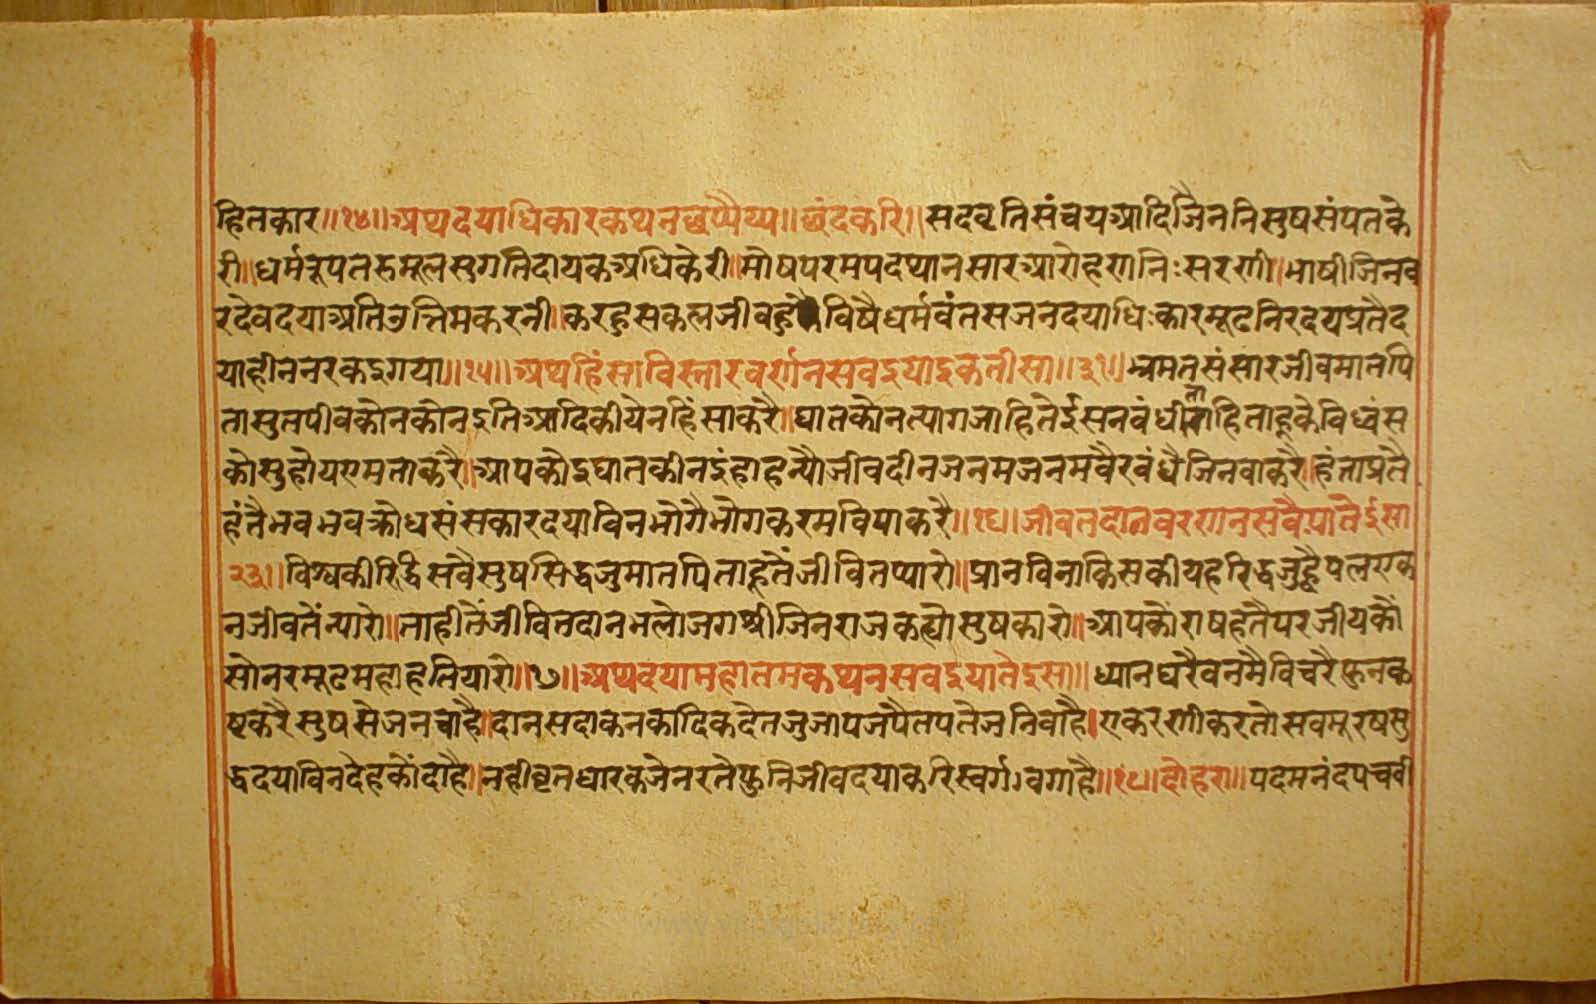 हितकार॥१४॥अथदयाधिकारकथनछप्पैय्य॥छंदकरि॥सदवृतिसंचयआदिजैननिसुषसंपतके
री॥धर्मरूपतरुमूलसुगतिदायकअधिकेरी॥मोषपरमपदथानसारआरोहणनिःसरणी॥भाषीजिनव
रदेवदयाअतिउत्तिमकरनी॥करहुसकलजीवहुकेविषैधर्मवंतसजनदयाधिःकारमूढनिरदयप्रतैद
याहीननरकदुगया॥१५॥अथहिंसाविस्तारवर्णनसवईयाइकतीसा॥३१॥भ्रमतसंसारजीवमातपि
तासुतपीवकोनकोनइतिआदिकीयेनहिंसाकरै॥घातकोनत्यागजाहितेईसनवंधीताहिताहूकेविध्वंस
कोसुहोयएमताकरै॥आपकोइघातकीनइंहाहन्यौजीवदीनजनमजनमवैरवंधैजिनवाकरै॥हंताप्रतै
हंतैभवभवक्रोधसंसकारदयाविनभोगैभोगकरमविपाकरै॥१६॥जीवतदानवरणनसवैयातेईसा
२३॥विश्वकीरिद्धिसवैसुषसिद्धजुमातपिताहूतैंजीवितप्यारो॥प्रानविनाकिसकीयहरिद्धजुह्वैपलएक
नजीवतेंन्यारो॥ताहीतैंजीवितदानभलोजगश्रीजिनराजकह्यौसुषकारो॥आपकौराषहतैपरजीयकौं
सोनरमूढमहाहतियारो॥१७॥अथदयामहातमकथनसवईयातेइसा॥ध्यानधरैवनमैविचरैफुनक
ष्टकरैसुषसेजनचाहै॥दानसदाकनकादिकदेतजुजापजपैतपतेजनिवाहै॥एकरणीकरतोसवमूरषसु
द्धदयाविनदेहकौंदाहै॥नहीवृतधारकजेनरतेफुनिजीवदयाकरिस्वर्गावगाहै॥१८॥दोहरा॥पदमनंदपचवी